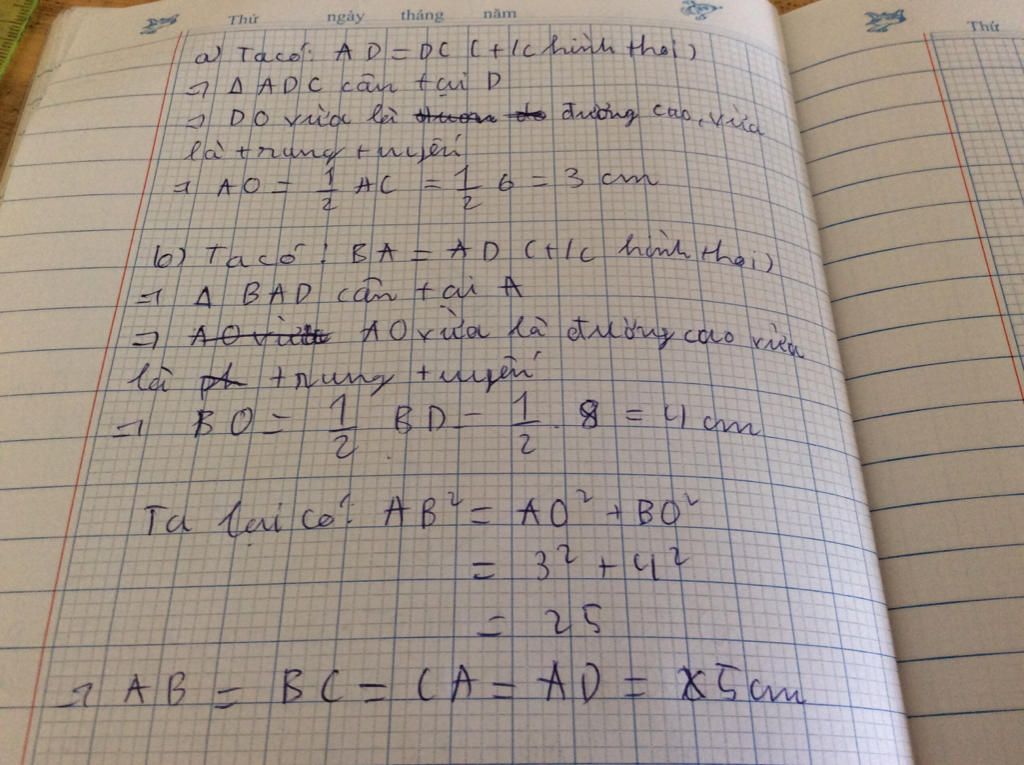 Thứ ngày tháng năm
Thứ
a) Ta có: AD = DC (t/c hình thoi)
⇒ Δ ADC cân tại D
⇒ DO vừa là đường cao, vừa
là trung tuyến
⇒ AO = 1/2 AC = 1/2 6 = 3 cm
b) Ta có: BA = AD (t/c hình thoi)
⇒ Δ BAD cân tại A
⇒ AO vừa AO vừa là đường cao vừa
là trung tuyến
⇒ BO = 1/2 BD = 1/2 . 8 = 4 cm
Ta lại có: AB² = AO² + BO²
= 3² + 4²
= 25
⇒ AB = BC = CA = AD = 5 cm